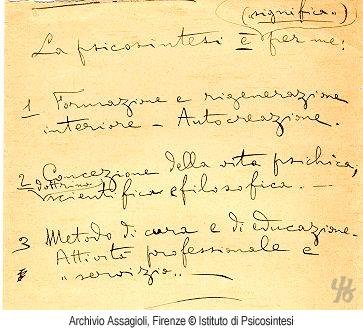 (significa..)
La psicosintesi è per me:
1 Formazione e rigenerazione
interiore - Autocreazione.
2 Concezione della vita psichica,
(dottrina)
scientifica e filosofica. -
3 Metodo di cura e di educazione.
Attività professionale e
"servizio.. -
Archivio Assagioli, Firenze © Istituto di Psicosintesi